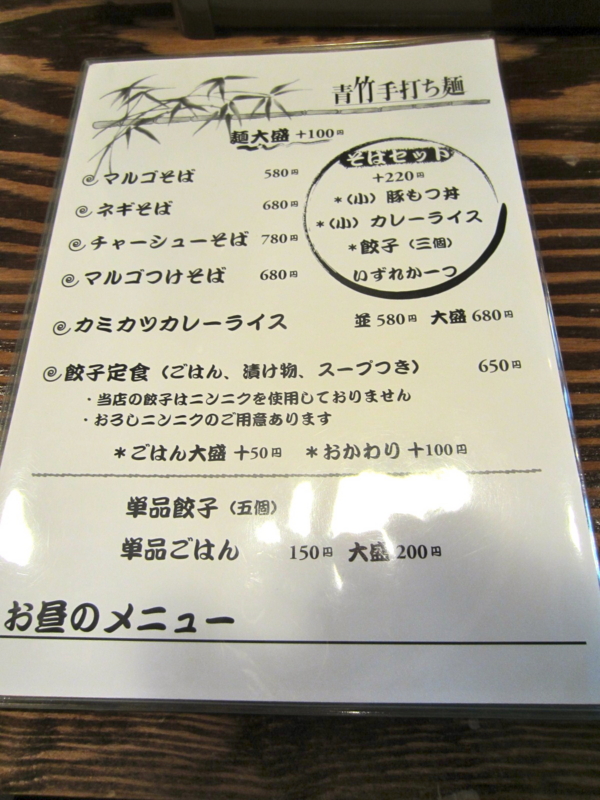 青竹手打ち麺
麺大盛 +100円
マルゴそば 580円
ネギそば 680円
チャーシューそば 780円
マルゴつけそば 680円
そばセット
+220円
*(小) 豚もつ丼
*(小) カレーライス
*餃子 (三個)
いずれか一つ
カミカツカレーライス 並 580円 大盛 680円
餃子定食 (ごはん、漬け物、スープつき) 650円
・当店の餃子はニンニクを使用しておりません
・おろしニンニクのご用意あります
*ごはん大盛 +50円 *おかわり +100円
単品餃子 (五個)
単品ごはん 150円 大盛 200円
お昼のメニュー